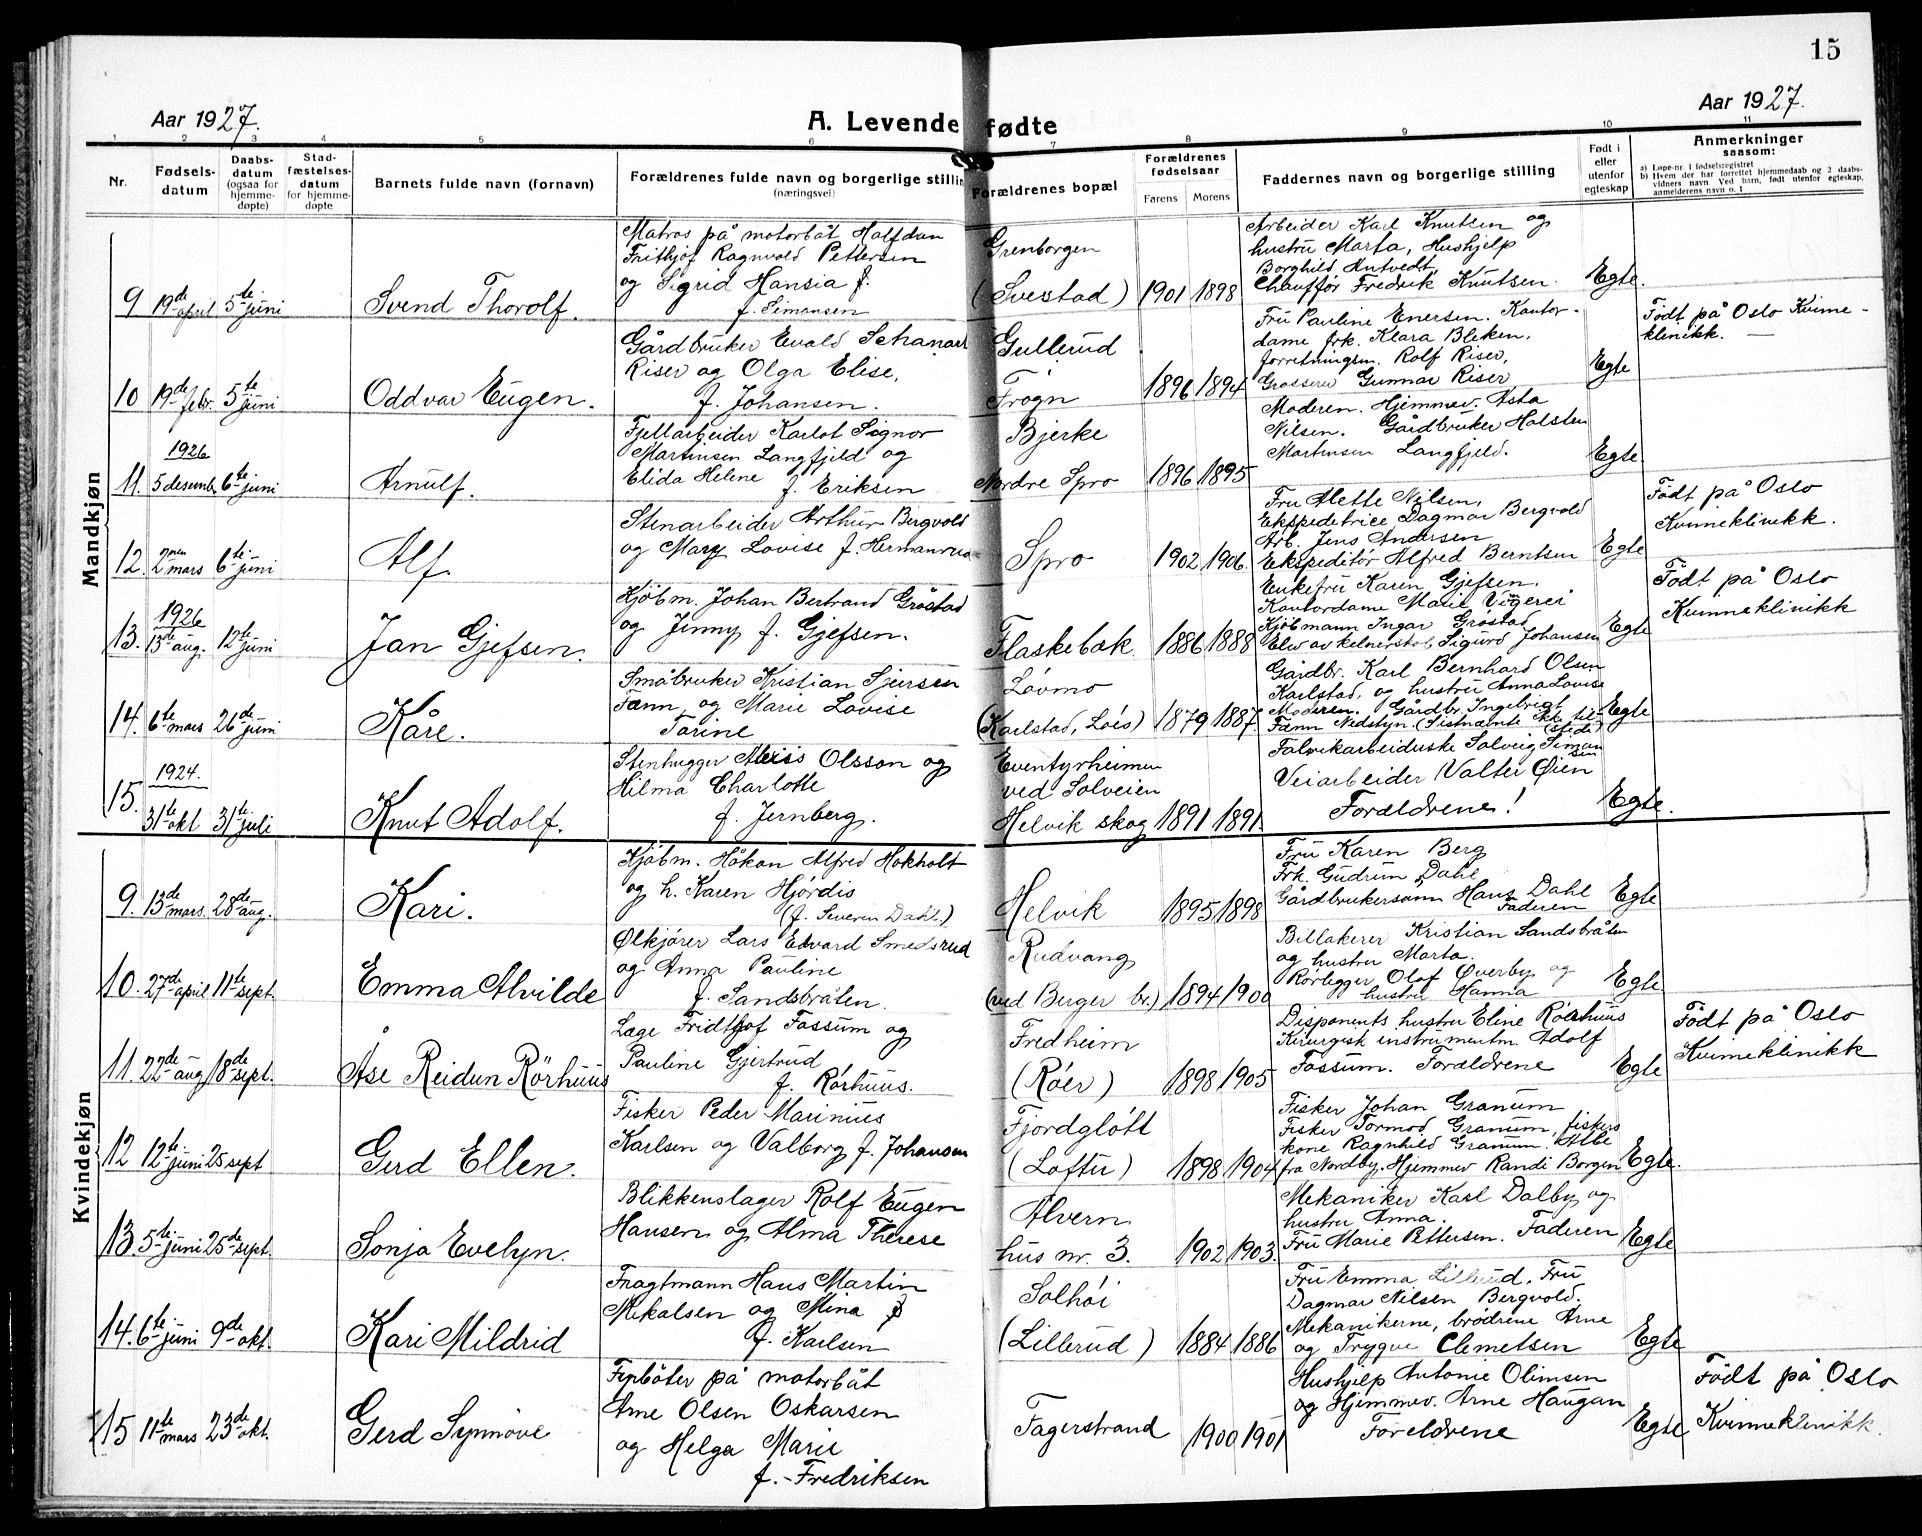 15
Aar 1927.
A. Levende fødte
Aar 1927.
1 2 3 4 5 6 7 8 9 10 11
Nr.
Fødsels-
datum
Daabs-
datum
(ogsaa for
hjemme-
døpte)
Stad-
fæstelses-
datum
for hjemme-
døpte
Barnets fulde navn (fornavn)
Forældrenes fulde navn og borgerlige stilling
(næringsvei)
Forældrenes bopæl
Forældrenes
fødselsaar
Farens Morens
Faddernes navn og borgerlige stilling
Født i
eller
utenfor
egteskap
Anmerkninger
saasom:
a) Løpe-nr. i fødselsregistret
b) Hvem der har forrettet hjemmedaab og 2 daabs-
vidners navn Ved barn, født utenfor egteskap,
anmelderens navn o. l
Mandkjøn
9 19de april 5te juni
Svend Thorolf.
Matros på motorbåt Halfdan
Frithjof Ragnvald Pettersen
og Sigrid Hansia f.
f. Simensen
Grenborgen
(Svestad) 1901 1898
Arbeider Karl Knutsen og
hustru Marta, Hushjelp
Borghild Antvedt,
Chauffør Fredrik Knutsen.
Egte.
10 19de febr. 5te juni
Oddvar Eugen.
Gårdbruker Evald
Riser og Olga Elise,
f. Johansen.
Gullerud
Frogn 1896 1894
Fru Pauline Enersen. Kontor-
dame frk. Klara Bleken,
forretningsm. Rolf Riser,
Grosserer Gunnar Riser
Egte
Født på Oslo Kvinne-
klinikk. —
1926
11. 5 desemb. 6te juni
Arnulf.
Fjellarbeider Karlot Signor
Martinsen Langfjeld og
Elida Helene f. Eriksen
Bjerke
Nordre Spro 1896 1895
Moderen. Hjemmev. Asta
Nilsen. Gårdbruker Halsten
Martinsen Langfjeld.
Egte
12. 2nen mars 6te juni
Alf.
Stenarbeider Arthur Bergvold
og Mary Lovise f. Hermansrud
Spro 1902 1906.
Fru Alette Nilsen,
Ekspedetrice Dagmar Bergvold
Arb. Jens Andersen
Ekspeditør Alfred Berntsen
Egte
Født på Oslo
Kvinneklinikk.
1926
13. 13de aug. 12te juni
Jan Gjefsen.
Kjøbm. Johan Bertrand Gråstad
og Jenny f. Gjefsen.
Flaskebæk. 1886 1888
Enkefru Karen Gjefsen.
Kontordame Marie Vigerei
Kjøbmann Ingar Gråstad
Elev av kelnerskol. Sigurd Johansen
Egte
Født på Oslo
Kvinneklinikk
14. 6te mars 26de juni
Kåre.
Småbruker Kristian Sjursen
Fænn og Marie Lovise
Torine
Løvmo
(Karlstad, Løes) 1879 1887.
Gårdbr. Karl Bernhard Olsen
Karlstad, og hustru Anna Lovise
Moderen. Gårdbr. Ingebrigt
Fænn Nedstyn. (Sistnævnte ikke til-
stede)
Egte
1924.
15. 31te okt 31te juli
Knut Adolf.
Stenhugger Alexis Olsson og
Hilma Charlotte
f. Jernberg.
Eventyrheimen
ved Solveien
Helvik skog 1891 1891.
Fabrikarbeiderske Solveig Simensen
Veiarbeider Valter Øien
Forældrene!
Egte.
Kvindekjøn
9. 13de mars. 28de aug.
Kari.
Kjøbm. Håkon Alfred Hokholt
og h. Karen Hjørdis
(f. Severin Dahl.)
Helvik 1895 1898
Fru Karen Berg
Frk. Gudrun Dahl
Gårdbrukersønn Hans Dahl
Faderen
Egte
10. 27de april 11te sept.
Emma Alvilde
Ølkjører Lars Edvard Smedsrud
og Anna Pauline
f. Sandsbråten.
Rudvang
(ved Berger br.) 1894 1900
Billakerer Kristian Sandsbråten
og hustru Marta.
Rørlegger Olaf Øverby og
hustru Hanna
Egte
11. 22de aug 18de sept.
Åse Reidun Rørhuus
Læge Fridthjof Fossum og
Pauline Gjertrud
f. Rørhuus.
Fredheim
(Røer) 1898 1905
Disponents hustru Eline Rørhuus
Kirurgisk instrumentm. Adolf
Fossum. Foreldrene
Egte
Født på Oslo
Kvinneklinikk
12 12te juni 25 sept
Gerd Ellen.
Fisker Peder Marinius
Karlsen og Valborg f. Johansen
Fjordgløtt
(Loftu) 1898 1904
Fisker Johan Granum
Fisker Tormod Granum, fiskers
kone Ragnhild Granum. Alle
fra Nordby. Hjemmev Randi Borgen
Egte.
13 5te juni 25de sept.
Sonja Evelyn.
Blikkenslager Rolf Eugen
Hansen og Alma Therese
Alvern
hus nr. 3. 1902 1903.
Mekaniker Karl Dalby og
hustru Anna.
Fru Marie Pettersen. Faderen
Egte
14. 6te juni 9de okt.
Kari Mildrid
Fragtmann Hans Martin
Mikalsen og Mina f
f. Karlsen
Solhøi
(Lillerud) 1884 1886
Fru Emma Lillerud, Fru
Dagmar Nilsen Bergvold.
Mekanikerne, brødrene Arne
og Trygve Clemetsen
Egte
15 11te mars 23de okt.
Gerd Synnøve
Fyrbøter på motorbåt
Arne Olsen Oskarsen
og Helga Marie
f. Fredriksen
Fagerstrand 1900 1901
Hushjelp Antonie Olimsen
og Hjemmev. Arne Haugan
Foreldrene
Egte
Født på Oslo
Kvinneklinikk.